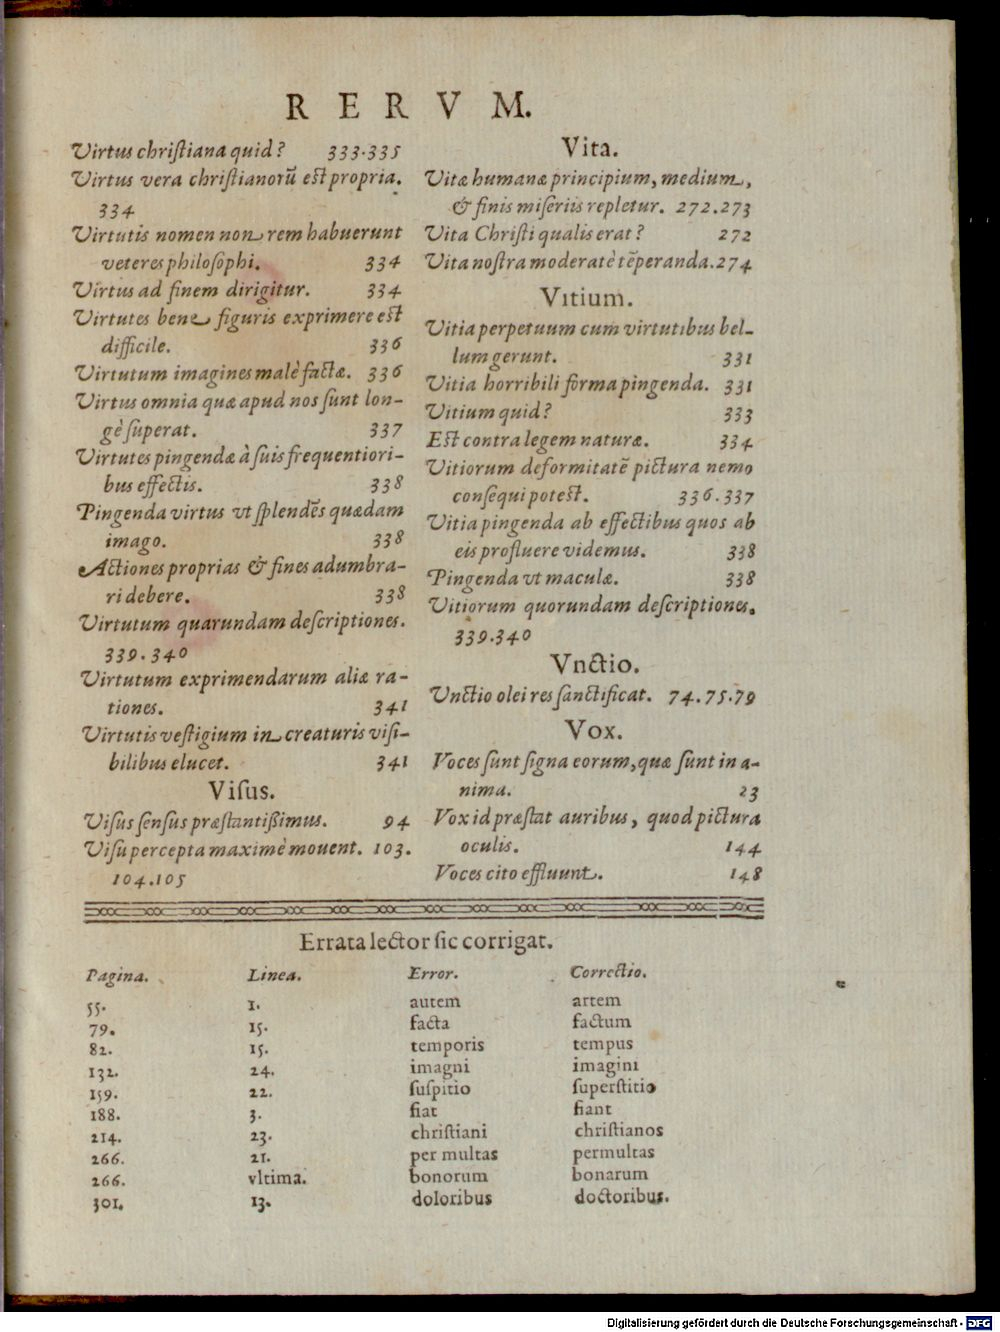 RERVM.
Virtus christiana quid? 333.335
Virtus vera christianorũ est propria.
334
Virtutis nomen non rem habuerunt
veteres philosophi. 334
Virtus ad finem dirigitur. 334
Virtutes bene figuris exprimere est
difficile. 336
Virtutum imagines malè factæ. 336
Virtus omnia quæ apud nos sunt lon-
gè superat. 337
Virtutes pingendæ à suis frequentiori-
bus effectis. 338
Pingenda virtus vt splendẽs quædam
imago. 338
Actiones proprias & fines adumbra-
ri debere. 338
Virtutum quarundam descriptiones.
339.340
Virtutum exprimendarum aliæ ra-
tiones. 341
Virtutis vestigium in creaturis visi-
bilibus elucet. 341
Visus.
Visus sensus præstantißimus. 94
Visu percepta maximè mouent. 103.
104.105
Vita.
Vitæ humanæ principium, medium,
& finis miseriis repletur. 272.273
Vita Christi qualis erat? 272
Vita nostra moderatè tẽperanda. 274
Vitium.
Vitia perpetuum cum virtutibus bel-
lum gerunt. 331
Vitia horribili forma pingenda. 331
Vitium quid? 333
Est contra legem naturæ. 334
Vitiorum deformitatẽ pictura nemo
consequi potest. 336.337
Vitia pingenda ab effectibus quos ab
eis profluere videmus. 338
Pingenda vt maculæ. 338
Vitiorum quorundam descriptiones.
339.340
Vnctio.
Vnctio olei res sanctificat. 74.75.79
Vox.
Voces sunt signa eorum, quæ sunt in a-
nima. 23
Vox id præstat auribus, quod pictura
oculis. 144
Voces cito effluunt. 148
Errata lector sic corrigat.
Pagina. Linea. Error. Correctio.
55. 1. autem artem
79. 15. facta factum
82. 15. temporis tempus
132. 24. imagni imagini
159. 22. suspitio superstitio
188. 3. fiat fiant
214. 23. christiani christianos
266. 21. per multas permultas
266. vltima. bonorum bonarum
301. 13. doloribus doctoribus.
Digitalisierung gefördert durch die Deutsche Forschungsgemeinschaft - DFG